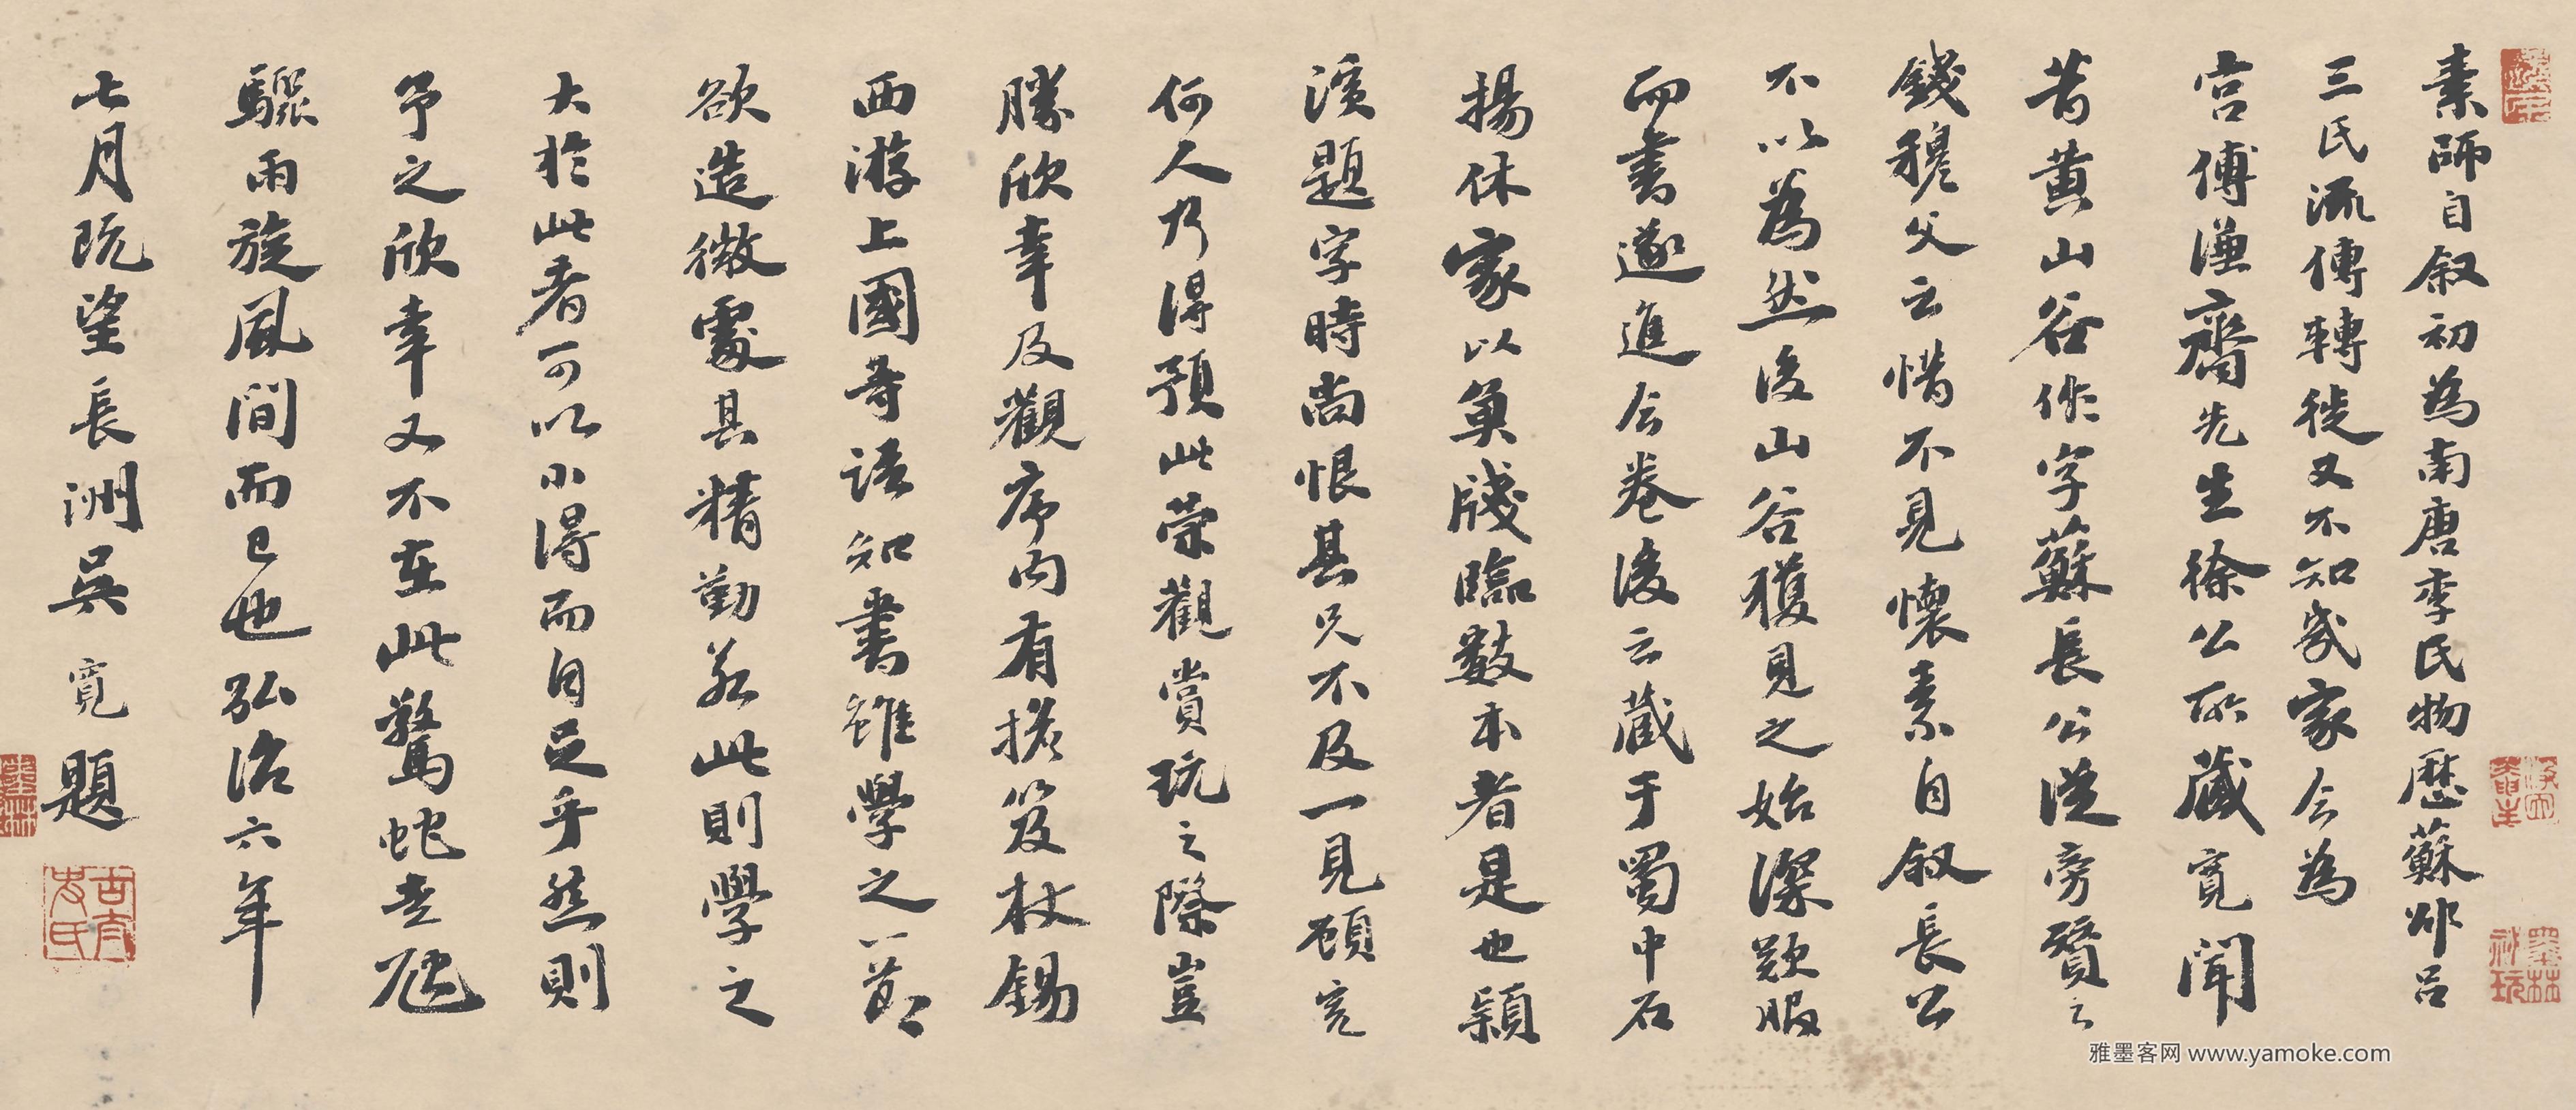 素師自叙初為南唐李氏物歷蘇邵呂
三氏流傳轉徙又不知幾家今為
宮傅謙齋先生徐公所藏寬聞
昔黃山谷作字蘇長公從旁贊之
錢穆父云惜不見懷素自叙長公
不以為然後山谷獲見之始深歎服
而書遂進今卷後云藏于蜀中石
揚休家以魚牋臨數本者是也穎
濱題字時尚恨其兄不及一見顧寬
何人乃得預此榮觀賞玩之際豈
勝欣幸及觀序內有擔笈杖錫
西游上國等語知書雖學之一節
欲造微處其精勤若此則學之
大於此者可以小得而自足乎然則
予之欣幸又不在此驚蛇走虺
驟雨旋風間而已也弘治六年
七月既望長洲吳寬題
雅墨客网 www.yamoke.com